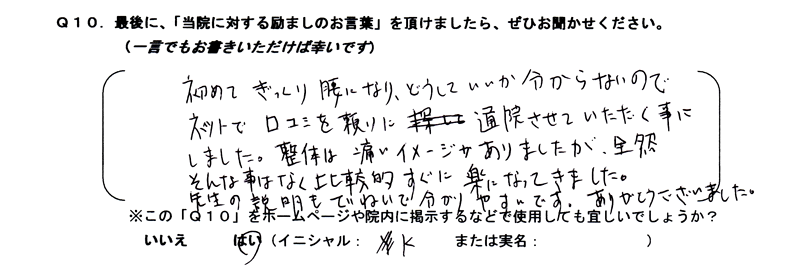 Q10．最後に、「当院に対する励ましのお言葉」を頂けましたら、ぜひお聞かせください。
（一言でもお書きいただけば幸いです）
初めて ぎっくり腰になり、どうしていいか分からないので
ネットで 口コミを頼りに 通院させていただく事に
しました。整体は痛いイメージがありましたが、全然
そんな事はなく比較的すぐに楽になってきました。
先生の説明もていねいで分かりやすいです。ありがとうございました。
※この「Q10」をホームページや院内に掲示するなどで使用しても宜しいでしょうか？
いいえ　はい（イニシャル： K　または実名：　）